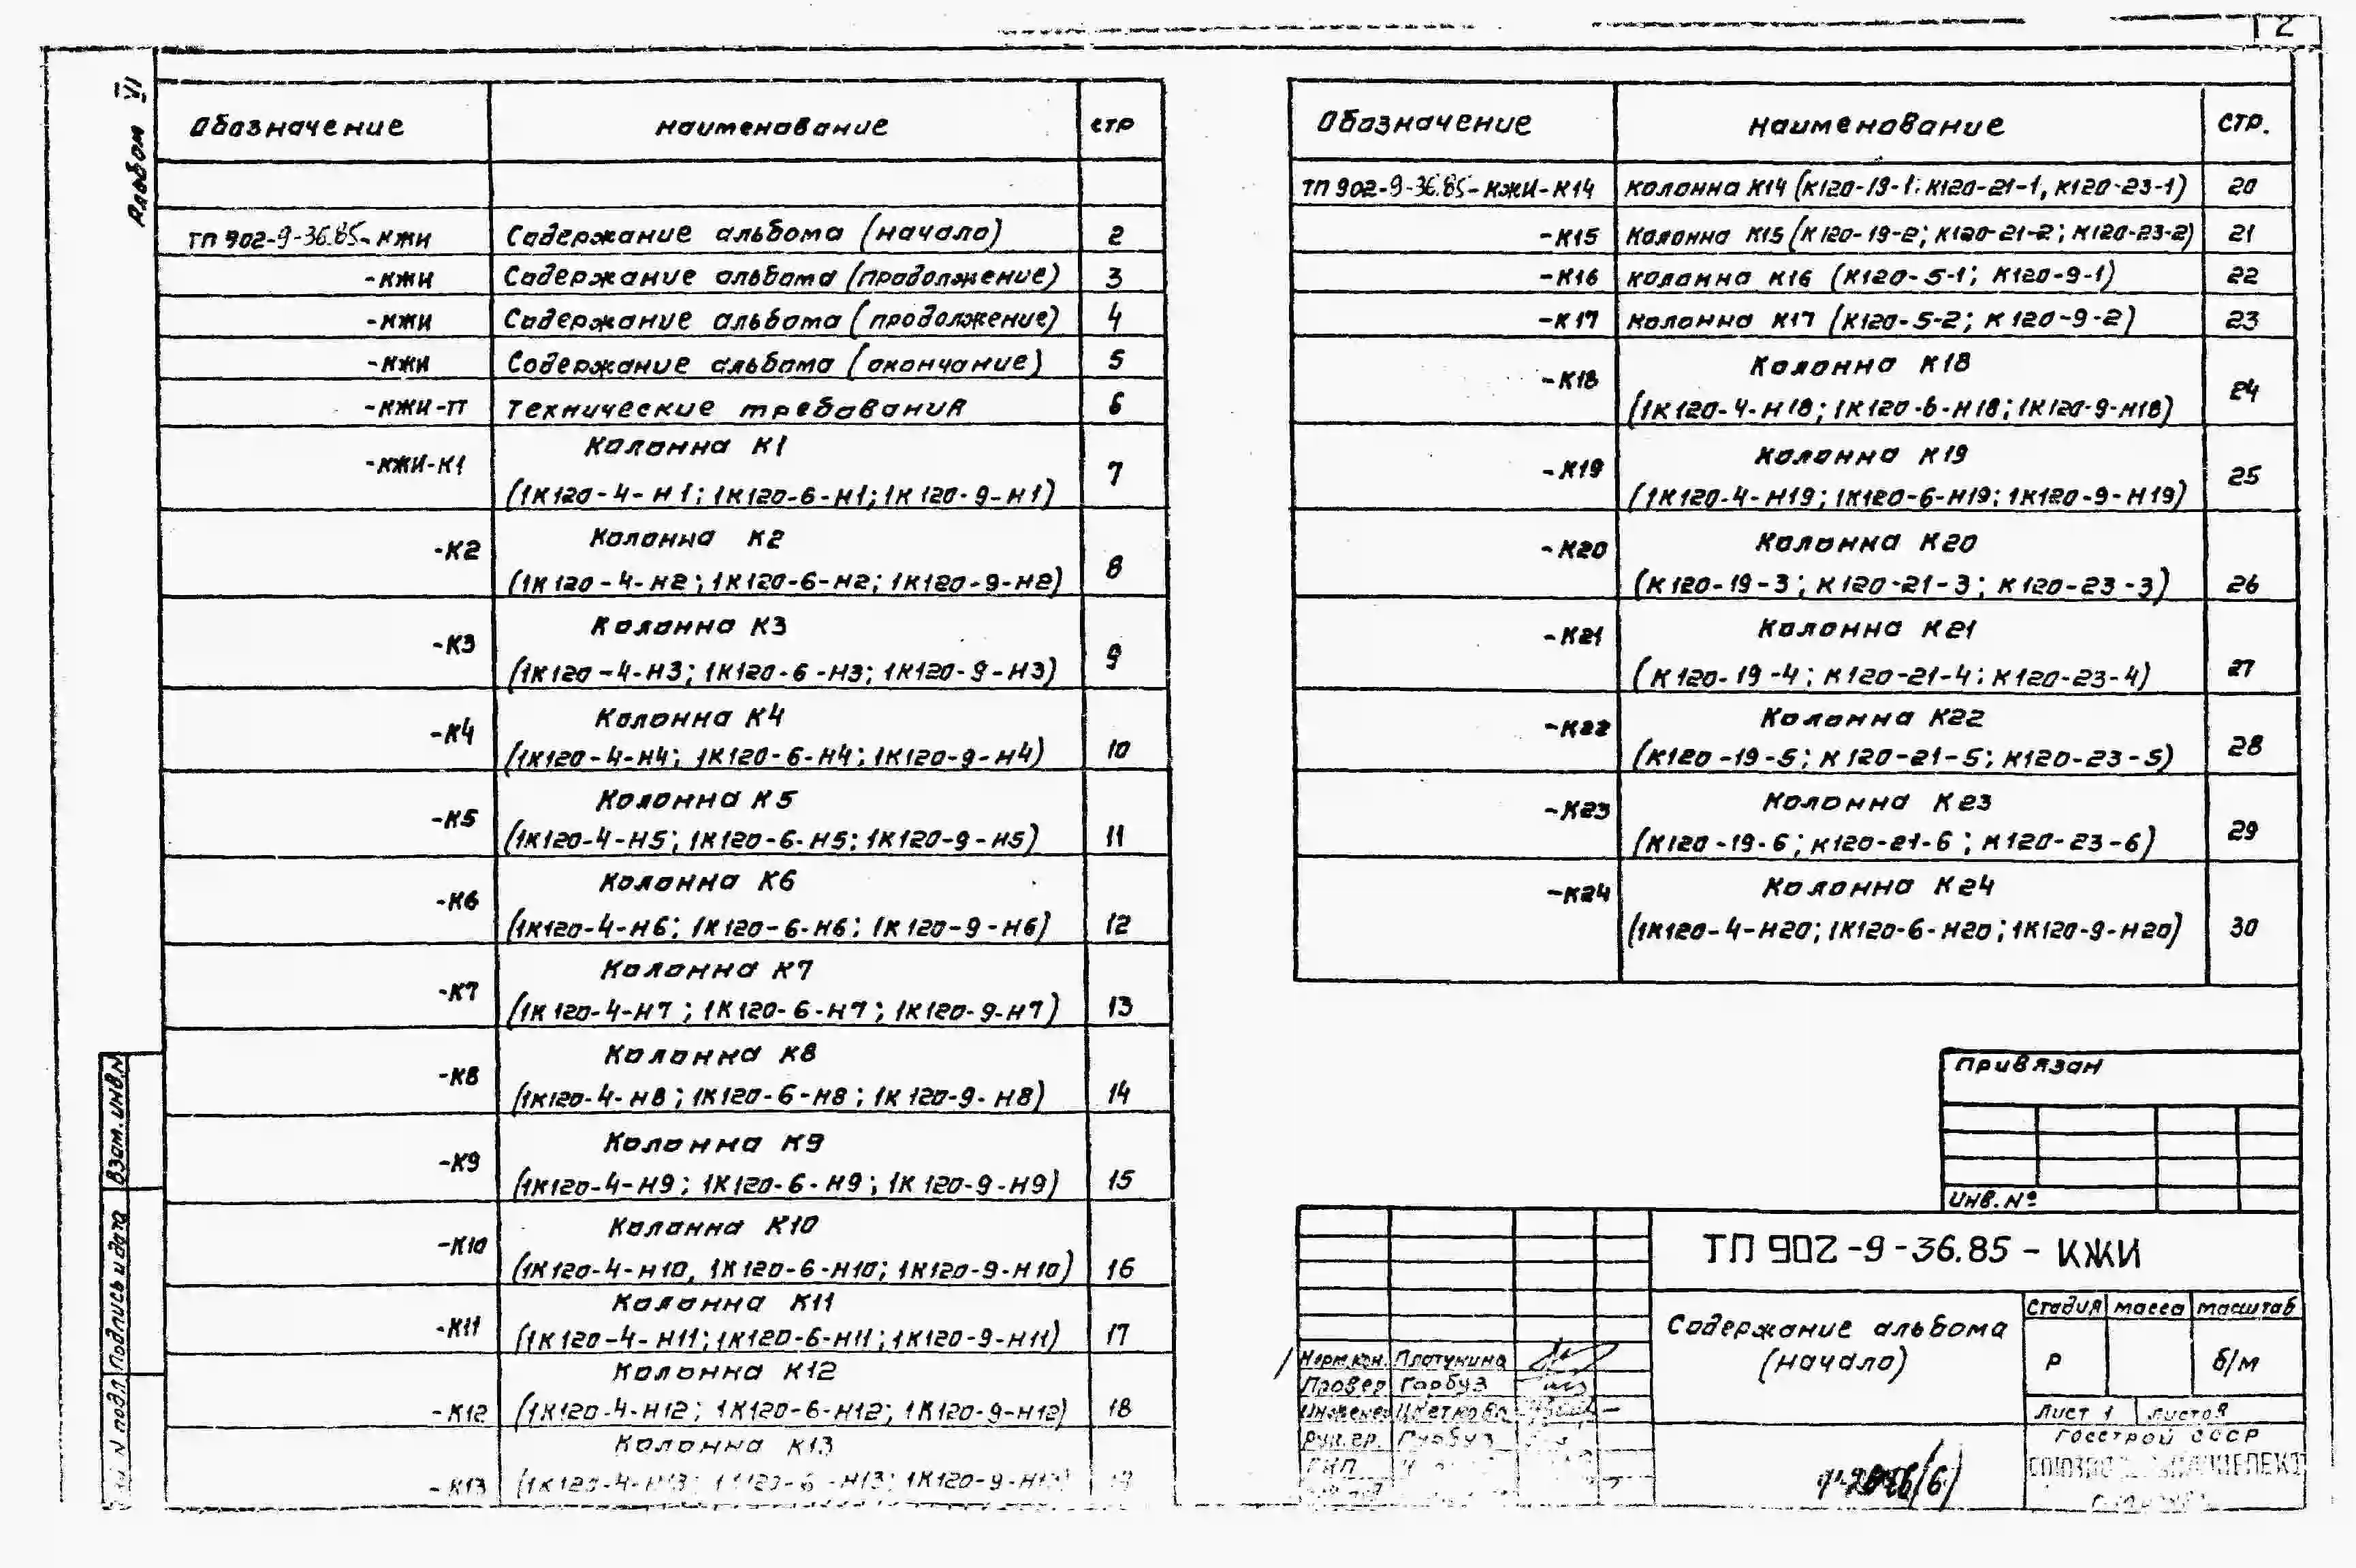 2
Альбом VI
Обозначение Наименование стр
ТП 902-9-36.85-КЖИ Содержание альбома (начало) 2
-КЖИ Содержание альбома (продолжение) 3
-КЖИ Содержание альбома (продолжение) 4
-КЖИ Содержание альбома (окончание) 5
-КЖИ-ТТ Технические требования 6
-КЖИ-К1 Колонна К1 7
(1К120-4-Н1; 1К120-6-Н1; 1К120-9-Н1)
-К2 Колонна К2 8
(1К120-4-Н2; 1К120-6-Н2; 1К120-9-Н2)
-К3 Колонна К3 9
(1К120-4-Н3; 1К120-6-Н3; 1К120-9-Н3)
-К4 Колонна К4 10
(1К120-4-Н4; 1К120-6-Н4; 1К120-9-Н4)
-К5 Колонна К5 11
(1К120-4-Н5; 1К120-6-Н5; 1К120-9-Н5)
-К6 Колонна К6 12
(1К120-4-Н6; 1К120-6-Н6; 1К120-9-Н6)
-К7 Колонна К7 13
(1К120-4-Н7; 1К120-6-Н7; 1К120-9-Н7)
-К8 Колонна К8 14
(1К120-4-Н8; 1К120-6-Н8; 1К120-9-Н8)
-К9 Колонна К9 15
(1К120-4-Н9; 1К120-6-Н9; 1К120-9-Н9)
-К10 Колонна К10 16
(1К120-4-Н10, 1К120-6-Н10; 1К120-9-Н10)
-К11 Колонна К11 17
(1К120-4-Н11; 1К120-6-Н11; 1К120-9-Н11)
Колонна К12
-К12 (1К120-4-Н12; 1К120-6-Н12; 1К120-9-Н12) 18
Колонна К13
-К13 (1К120-4-Н13; 1К120-6-Н13; 1К120-9-Н13) 19
Обозначение Наименование стр.
ТП 902-9-36.85-КЖИ-К14 Колонна К14 (К120-19-1; К120-21-1, К120-23-1) 20
-К15 Колонна К15 (К120-19-2; К120-21-2; К120-23-2) 21
-К16 Колонна К16 (К120-5-1; К120-9-1) 22
-К17 Колонна К17 (К120-5-2; К120-9-2) 23
-К18 Колонна К18 24
(1К120-4-Н18; 1К120-6-Н18; 1К120-9-Н18)
-К19 Колонна К19 25
(1К120-4-Н19; 1К120-6-Н19; 1К120-9-Н19)
-К20 Колонна К20
(К120-19-3; К120-21-3; К120-23-3) 26
-К21 Колонна К21
(К120-19-4; К120-21-4; К120-23-4) 27
-К22 Колонна К22
(К120-19-5; К120-21-5; К120-23-5) 28
-К23 Колонна К23
(К120-19-6; К120-21-6; К120-23-6) 29
-К24 Колонна К24
(1К120-4-Н20; 1К120-6-Н20; 1К120-9-Н20) 30
Привязан
Инв. №
ТП 902-9-36.85-КЖИ
Содержание альбома
(начало)
Стадия Масса Масштаб
Р б/м
Лист 1 Листов
Госстрой СССР
Норм.кон. Платунина
Провер Горбуз
Инженер Цветкова
Рук. гр. Горбуз
ГИП
Взам. инв. N
Подпись и дата
N подл